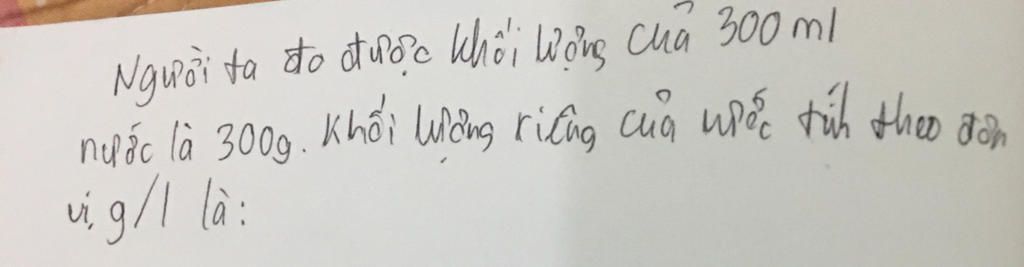 Người ta đo được khối lượng của 300 ml
nước là 300g. Khối lượng riêng của nước tính theo đơn
vị g/l là: